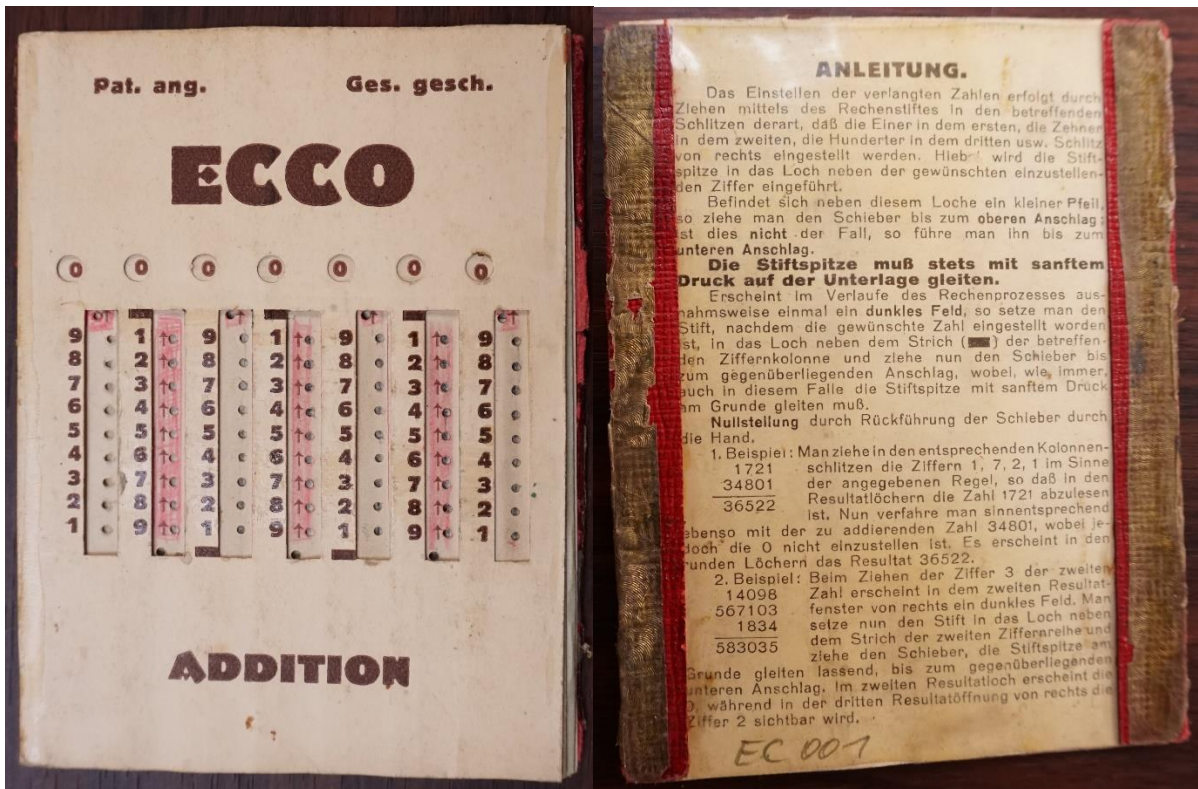 Pat. ang. Ges. gesch.
ECCO
0 0 0 0 0 0 0
9 1 9 1 9 1 9
8 2 8 2 8 2 8
7 3 7 3 7 3 7
6 4 6 4 6 4 6
5 5 5 5 5 5 5
4 6 4 6 4 6 4
3 7 3 7 3 7 3
2 8 2 8 2 8 2
1 9 1 9 1 9 1
ADDITION
ANLEITUNG.
Das Einstellen der verlangten Zahlen erfolgt durch
Ziehen mittels des Rechenstiftes in den betreffenden
Schlitzen derart, daß die Einer in dem ersten, die Zehner
in dem zweiten, die Hunderter in dem dritten usw. Schlitz
von rechts eingestellt werden. wird die Stift-
spitze in das Loch neben der gewünschten einzustellen-
den Ziffer eingeführt.
Befindet sich neben diesem Loche ein kleiner Pfeil,
so ziehe man den Schieber bis zum oberen Anschlag;
ist dies nicht der Fall, so führe man ihn bis zum
unteren Anschlag.
Die Stiftspitze muß stets mit sanftem
Druck auf der Unterlage gleiten.
Erscheint im Verlaufe des Rechenprozesses aus-
nahmsweise einmal ein dunkles Feld, so setze man den
Stift, nachdem die gewünschte Zahl eingestellt worden
ist, in das Loch neben dem Strich ( ) der betreffen-
den Ziffernkolonne und ziehe nun den Schieber bis
zum gegenüberliegenden Anschlag, wobei, wie immer,
auch in diesem Falle die Stiftspitze mit sanftem Druck
am Grunde gleiten muß.
Nullstellung durch Rückführung der Schieber durch
die Hand.
1. Beispiel: Man ziehe in den entsprechenden Kolonnen-
1721 schlitzen die Ziffern 1, 7, 2, 1 im Sinne
34801 der angegebenen Regel, so daß in den
36522 Resultatlöchern die Zahl 1721 abzulesen
ist. Nun verfahre man sinnentsprechend
ebenso mit der zu addierenden Zahl 34801, wobei je-
doch die 0 nicht einzustellen ist. Es erscheint in den
runden Löchern das Resultat 36522.
2. Beispiel: Beim Ziehen der Ziffer 3 der zweiten
14098 Zahl erscheint in dem zweiten Resultat-
567103 fenster von rechts ein dunkles Feld. Man
1834 setze nun den Stift in das Loch neben
583035 dem Strich der zweiten Ziffernreihe und
ziehe den Schieber, die Stiftspitze am
Grunde gleiten lassend, bis zum gegenüberliegenden
unteren Anschlag. Im zweiten Resultatloch erscheint die
0, während in der dritten Resultatöffnung von rechts die
Ziffer 2 sichtbar wird.
EC 001